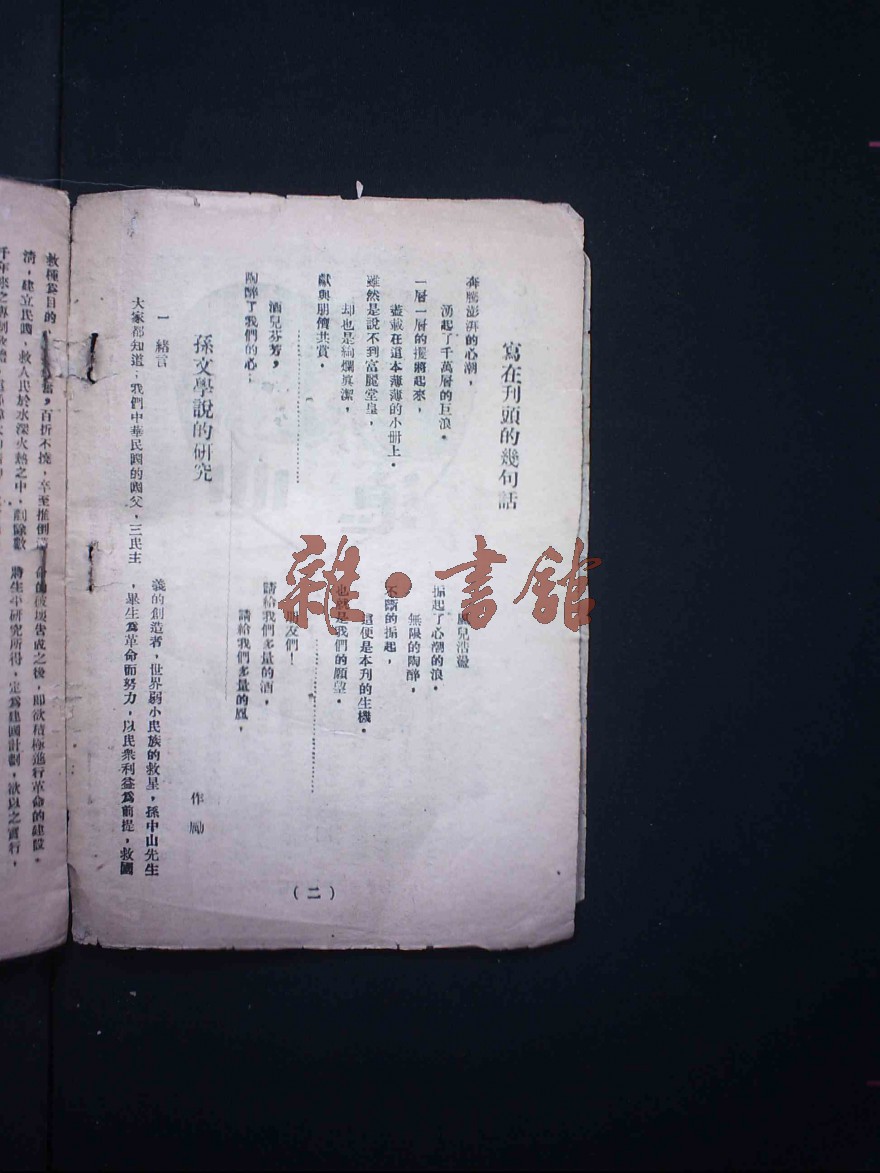 寫在刊頭的幾句話
奔騰澎湃的心潮，
湧起了千萬層的巨浪。
一層一層的推將起來，
盡載在這本薄薄的小册上。
雖然是說不到富麗堂皇，
却也是絢爛眞潔，
獻與朋儕共賞。
酒兒芬芳，
陶醉了我們的心；
風兒浩蕩
掀起了心潮的浪。
無限的陶醉，
不斷的掀起，
這便是本刊的生機。
也就是我們的願望。
朋友們！
請給我們多量的酒，
請給我們多量的風，
孫文學說的硏究
作勵
一　緒言
大家都知道；我們中華民國的國父，三民主
義的創造者，世界弱小民族的救星，孫中山先生
，畢生爲革命而努力，以民衆利益爲前提，救國
（二）
救種爲目的，
百折不撓，卒至推倒
淸，建立民國，救人民於水深火熱之中，剷除數
命的破壞告成之後，卽欲積極進行革命的建設。
將生平硏究所得，定爲建國計劃，欲以之實行，
雜·書館